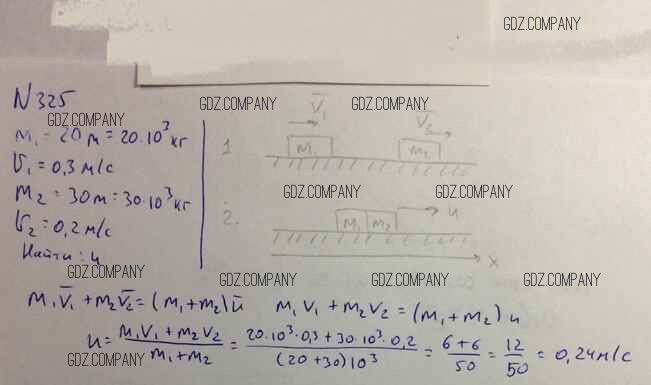 GDZ.COMPANY
N 325
GDZ.COMPANY GDZ.COMPANY GDZ.COMPANY
m₁ = 20 т = 20·10³ кг
V₁ = 0,3 м/с
m₂ = 30 т = 30·10³ кг
V₂ = 0,2 м/с
Найти: u
1 V̅₁ V̅₂
m₁ m₂
GDZ.COMPANY GDZ.COMPANY
2. m₁ m₂ u
x
GDZ.COMPANY GDZ.COMPANY GDZ.COMPANY GDZ.COMPANY
m₁V̅₁ + m₂V̅₂ = (m₁ + m₂) u̅ m₁V₁ + m₂V₂ = (m₁ + m₂) u
u = (m₁V₁ + m₂V₂)/(m₁ + m₂) = (20·10³·0,3 + 30·10³·0,2)/((20 + 30)10³) = (6 + 6)/50 = 12/50 = 0,24 м/с
GDZ.COMPANY